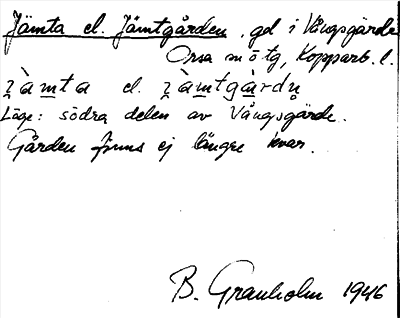 Jämta el. Jämtgården, gd i Vångsgärde
Orsa sn ö tg, Kopparb. l.
Läge: södra delen av Vångsgärde.
Gården finns ej längre kvar.
B. Granholm 1946